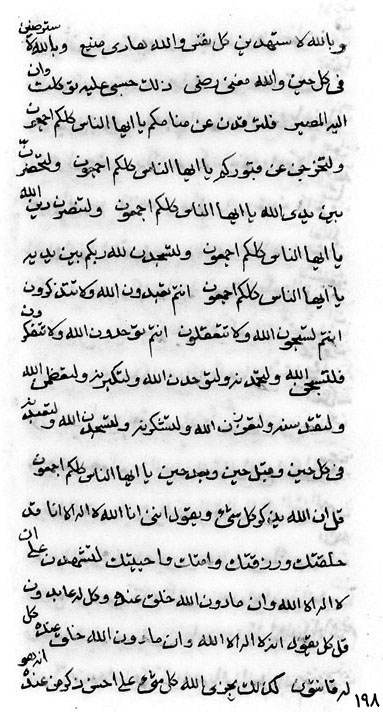 وبالله لاستهدين كل يفنى والله هادى منيع وبالله لاسترضين
فى كل حين والله مغنى رضى ذلك حسبى عليه توكلت وان
اليه المصير فلترقدن عن منامكم يا ايها الناس كلكم اجمعون
ولتخرجن عن قبوركم يا ايها الناس كلكم اجمعون ولتحضرن
بين يدى الله يا ايها الناس كلكم اجمعون ولتنصرن دين الله
يا ايها الناس كلكم اجمعون ولتسجدن لله ربكم بين يديه
يا ايها الناس كلكم اجمعون انتم تعبدون الله ولا تتذكرون
انتم لتسبحون الله ولا تتعقلون انتم توحدون الله ولا تتفكرون
فلتسبحن الله ولتحمدنه ولتوحدن الله ولتكبرنه ولتعظمن الله
ولتقدسنه ولتعززن الله ولتشكرنه ولتسجدن الله ولتعبدنه
فى كل حين وقبل حين وبعد حين يا ايها الناس كلكم اجمعون
قل ان الله يذكر كل شىء ويقول اننى انا الله لا اله الا انا قد
خلقتك ورزقتك وامتك واحييتك لتشهدن على ان
لا اله الا الله وان مادون الله خلق عنده وكل له عابدون
قل كل يقول انه لا اله الا الله وان مادون الله خلق عنده كل
له قانتون كذلك يجزى الله كل شىء على احسن ذكر من عنده انه هو
١٩٨